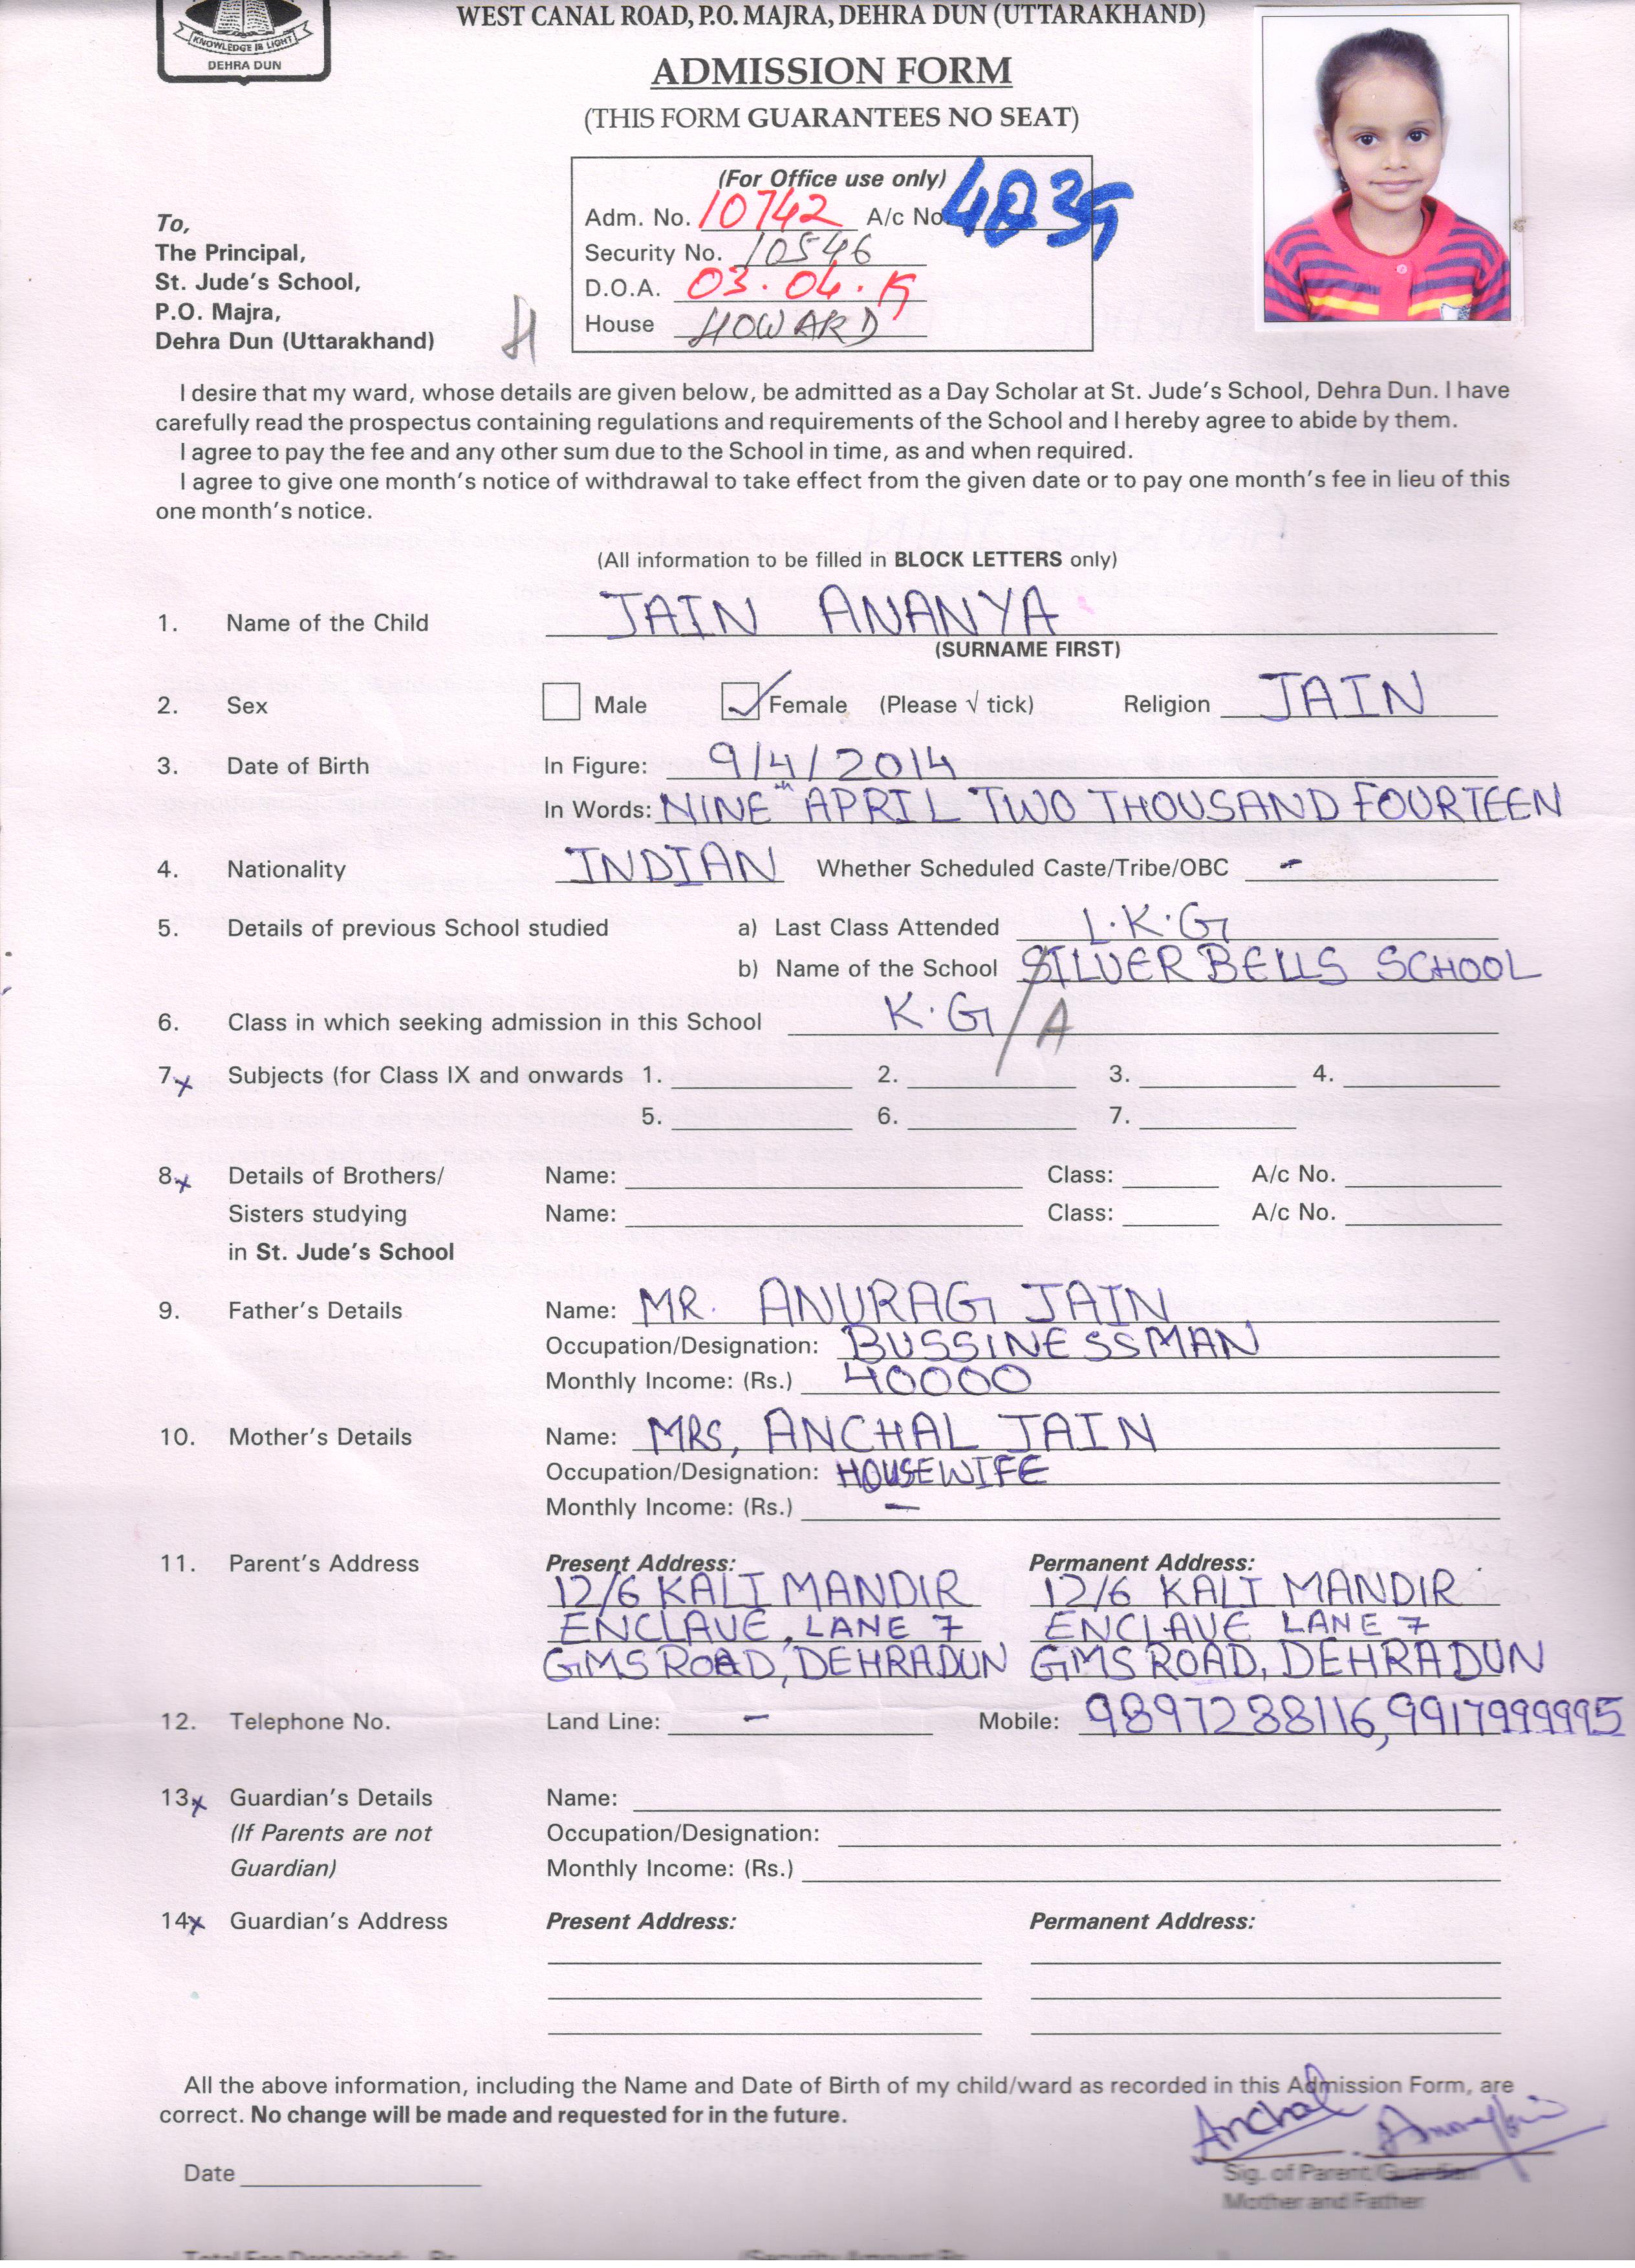 WEST CANAL ROAD, P.O. MAJRA, DEHRA DUN (UTTARAKHAND)
KNOWLEDGE IS LIGHT
DEHRA DUN
ADMISSION FORM
(THIS FORM GUARANTEES NO SEAT)
(For Office use only)
Adm. No. 10742 A/c No
Security No. 10546
D.O.A. 03.04.19
House HOWARD
To,
The Principal,
St. Jude's School,
P.O. Majra,
Dehra Dun (Uttarakhand)
H
I desire that my ward, whose details are given below, be admitted as a Day Scholar at St. Jude's School, Dehra Dun. I have
carefully read the prospectus containing regulations and requirements of the School and I hereby agree to abide by them.
I agree to pay the fee and any other sum due to the School in time, as and when required.
I agree to give one month's notice of withdrawal to take effect from the given date or to pay one month's fee in lieu of this
one month's notice.
(All information to be filled in BLOCK LETTERS only)
1. Name of the Child JAIN ANANYA
(SURNAME FIRST)
2. Sex Male ✓ Female (Please √ tick) Religion JAIN
3. Date of Birth In Figure: 9/4/2014
In Words: NINEth APRIL TWO THOUSAND FOURTEEN
4. Nationality INDIAN Whether Scheduled Caste/Tribe/OBC -
5. Details of previous School studied a) Last Class Attended L.K.G
b) Name of the School SILVER BELLS SCHOOL
6. Class in which seeking admission in this School K.G/A
7.x Subjects (for Class IX and onwards 1. 2. 3. 4.
5. 6. 7.
8.x Details of Brothers/ Name: Class: A/c No.
Sisters studying Name: Class: A/c No.
in St. Jude's School
9. Father's Details Name: MR. ANURAG JAIN
Occupation/Designation: BUSSINESSMAN
Monthly Income: (Rs.) 40000
10. Mother's Details Name: MRS, ANCHAL JAIN
Occupation/Designation: HOUSEWIFE
Monthly Income: (Rs.) -
11. Parent's Address Present Address: Permanent Address:
12/6 KALI MANDIR 12/6 KALI MANDIR
ENCLAVE, LANE 7 ENCLAVE LANE 7
GMS ROAD, DEHRADUN GMS ROAD, DEHRADUN
12. Telephone No. Land Line: - Mobile: 9897288116, 9917999995
13.x Guardian's Details Name:
(If Parents are not Occupation/Designation:
Guardian) Monthly Income: (Rs.)
14.x Guardian's Address Present Address: Permanent Address:
All the above information, including the Name and Date of Birth of my child/ward as recorded in this Admission Form, are
correct. No change will be made and requested for in the future.
Anchal
Date Sig. of Parent/Guardian
Mother and Father